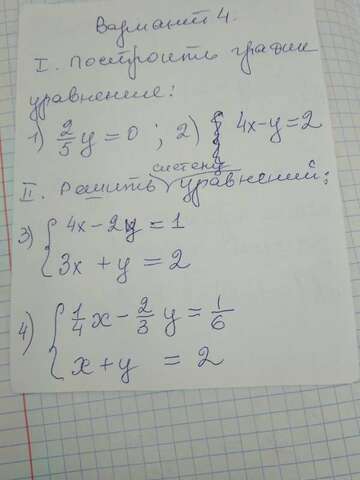 Вариант 4.
I. Построить график
уравнение:
1) 2/5 y = 0 ; 2) 4x - y = 2
II. Решить систему уравнений:
3) { 4x - 2y = 1
3x + y = 2
4) { 1/4 x - 2/3 y = 1/6
x + y = 2